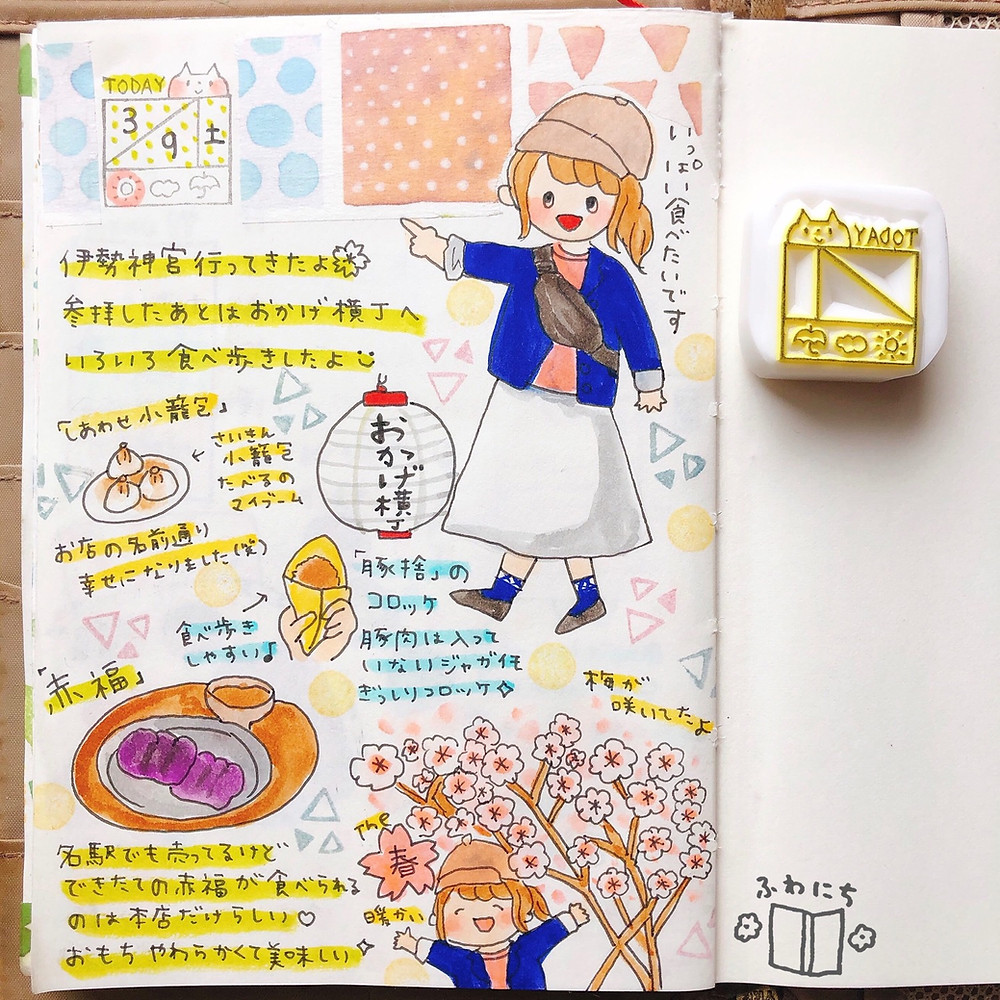 TODAY
3
9
土
いっぱい食べたいです
伊勢神宮行ってきたよ
参拝したあとはおかげ横丁へ
いろいろ食べ歩きしたよ
「しあわせ小籠包」
さいきん
小籠包
たべるの
マイブーム
お店の名前通り
幸せになりました(笑)
おかげ横丁
「豚捨」の
コロッケ
食べ歩き
しやすい♪
豚肉は入って
いないジャガイモ
ぎっしりコロッケ
「赤福」
梅が
咲いてたよ
名駅でも売ってるけど
できたての赤福が食べられる
のは本店だけらしい♡
おもちやわらかくて美味しい
The
春
暖かい
YADOT
ふわにち